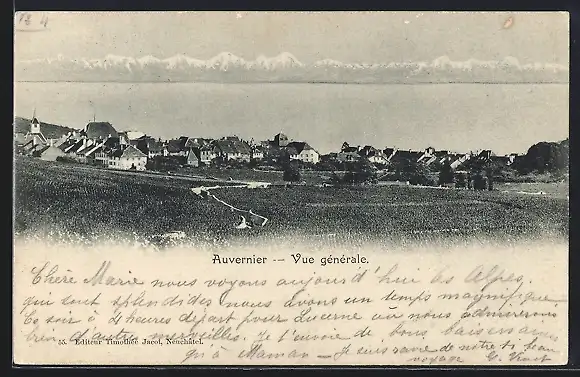 Auvernier — Vue générale.
Chère Marie nous voyons aujourd'hui les Alpes
qui sont splendides nous avons un temps magnifique
Ce soir à 4 heures départ pour Lucerne où nous admirerons
bien d'autres merveilles. Je t'envoie de bons baisers ainsi
55. Editeur Timothée Jacot, Neuchâtel.
qu'à Maman — Je suis ravie de notre si beau
voyage